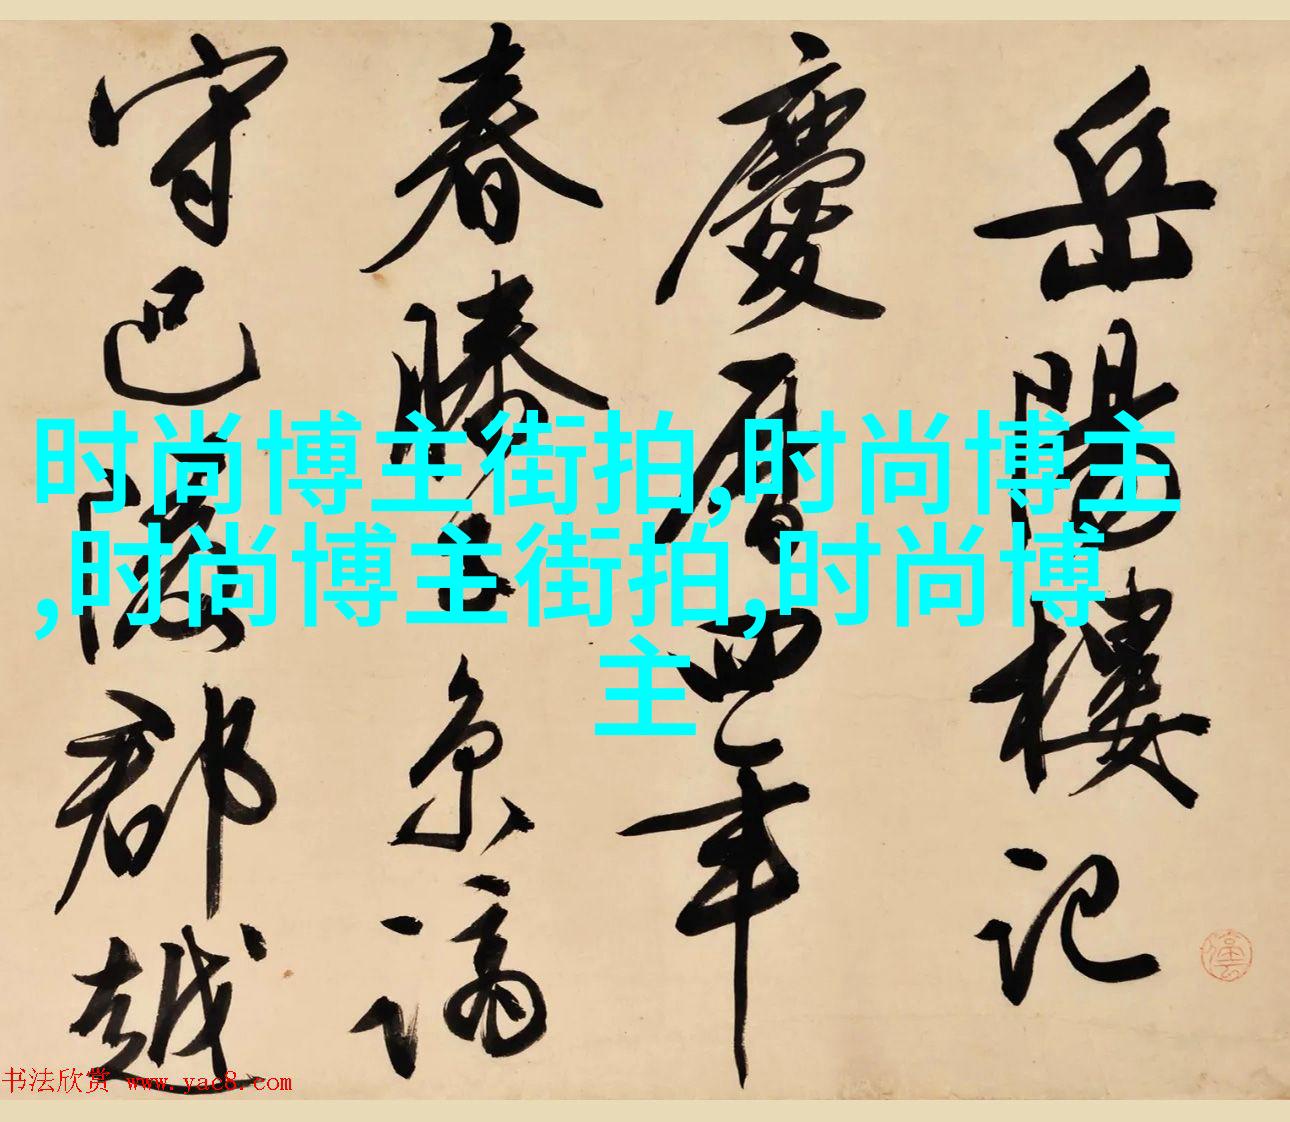 岳陽樓記
慶曆四年
春滕子京謫
守巴陵郡越
时尚博主街拍,时尚博主
,时尚博主街拍,时尚博
主
书法欣赏 www.yac8.com